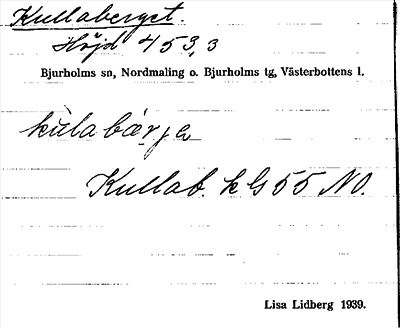 Kullaberget.
Höjd 453,3
Bjurholms sn, Nordmaling o. Bjurholms tg, Västerbottens l.
kùlabær̨ja
Kullab. k G 55 NO.
Lisa Lidberg 1939.